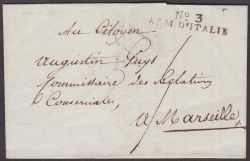 No 3
ARM. D'ITALIE
Au Citoyen
Augustin Guys
Commissaire des Relations
Commerciales,
a Marseille